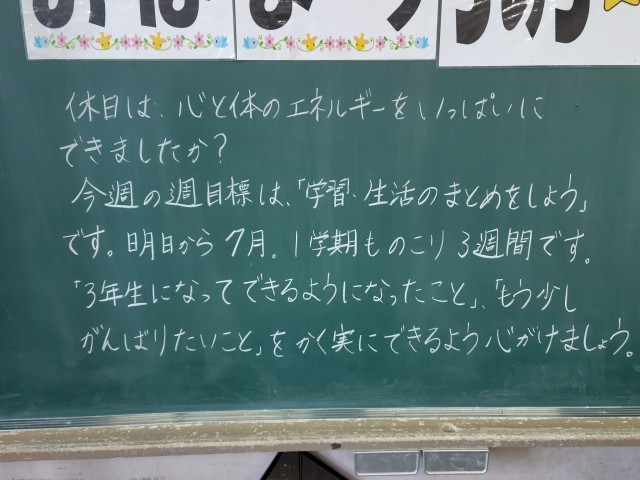 休日は、心と体のエネルギーをいっぱいに
できましたか?
今週の週目標は、「学習・生活のまとめをしよう」
です。明日から7月。1学期ものこり3週間です。
「3年生になってできるようになったこと」、「もう少し
がんばりたいこと」をかく実にできるよう心がけましょう。